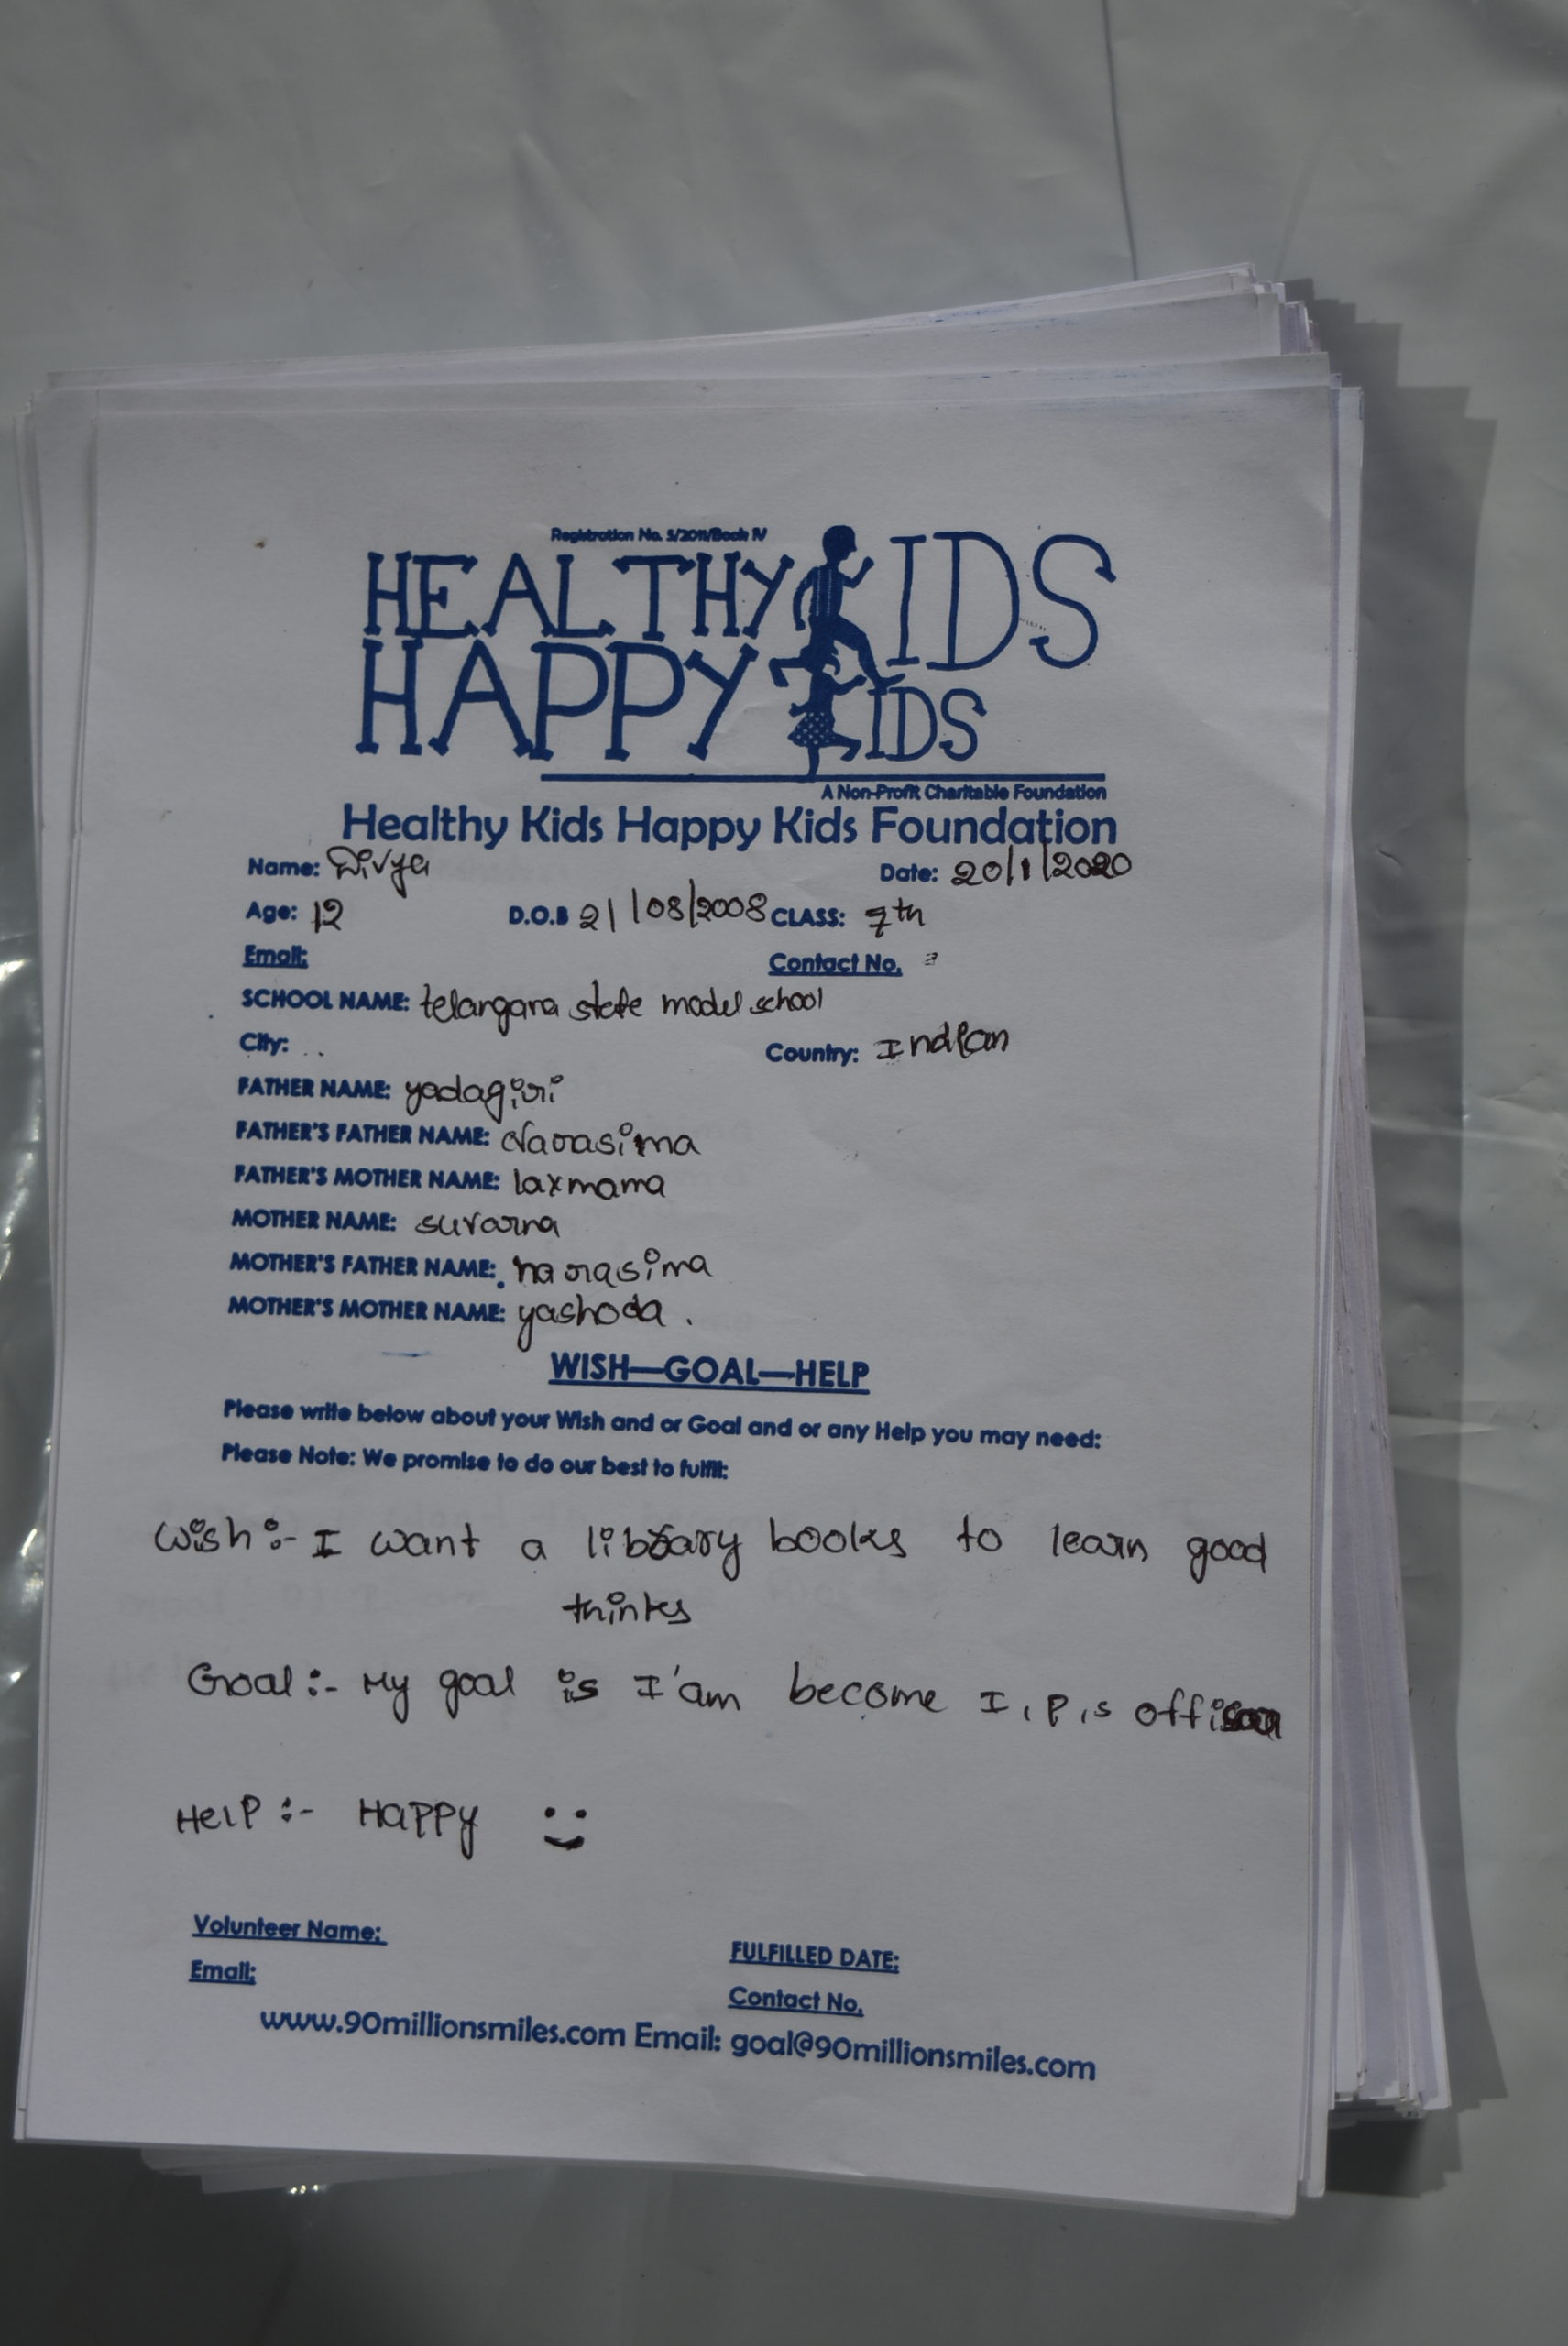 Registration No. 5/2011/Book IV
HEALTHY KIDS
HAPPY KIDS
A Non-Profit Charitable Foundation
Healthy Kids Happy Kids Foundation
Name: Divya Date: 20/1/2020
Age: 12 D.O.B 21/08/2008 CLASS: 7th
Email: Contact No.
SCHOOL NAME: telangara state model school
City: .. Country: Indian
FATHER NAME: yadagiri
FATHER'S FATHER NAME: Narasima
FATHER'S MOTHER NAME: laxmama
MOTHER NAME: suvarna
MOTHER'S FATHER NAME: narasima
MOTHER'S MOTHER NAME: yashoda.
WISH—GOAL—HELP
Please write below about your Wish and or Goal and or any Help you may need:
Please Note: We promise to do our best to fulfill:
Wish :- I want a library books to learn good
thinks
Goal :- My goal is I'am become I,P,S
Help :- Happy
Volunteer Name: FULFILLED DATE:
Email: Contact No.
www.90millionsmiles.com Email: goal@90millionsmiles.com